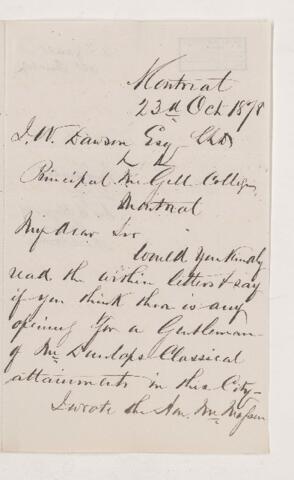 Montreal
23d Oct 1878
J. W. Dawson Esq LLD
Principal McGill College
Montreal
My dear Sir
Would you kindly
read the within letters & say
if you think there is any
opening for a Gentleman
of Mr Dunlop's Classical
attainments in this City—
I wrote the Hon. Mr